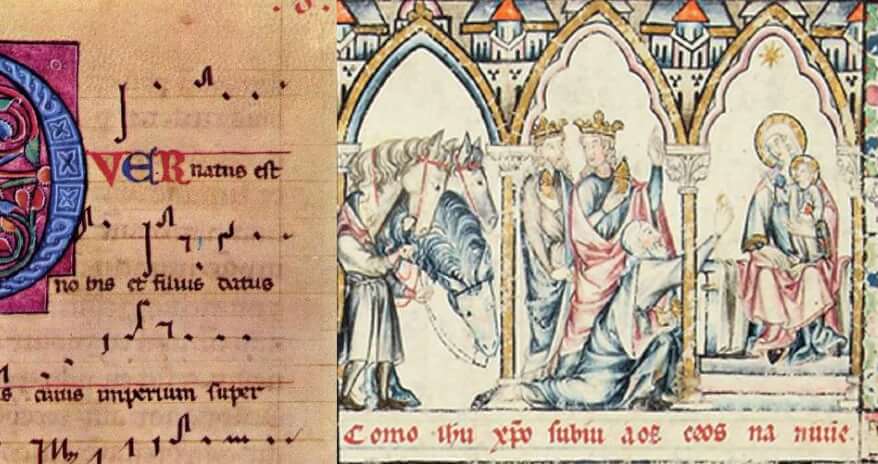 VER natus est
no bis et filius datus
s cuius imperium super
Como ihu xpo subiu aos ceos na nuue.